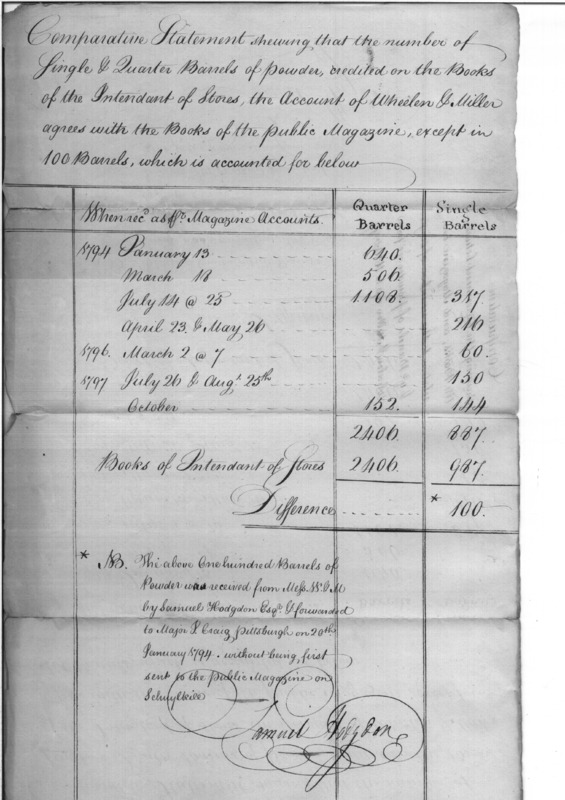 Comparative Statement shewing that the number of
Single & Quarter Barrels of Powder, credited on the Books
of the Intendant of Stores, the Account of Wheelen & Miller
agrees with the Books of the public Magazine, except in
100 Barrels, which is accounted for below
When recd as Magazine Accounts. Quarter Barrels Single Barrels
1794 January 13 640.
March 18 506.
July 14 @ 25 1108. 317
April 23 & May 26 216
1796. March 2 @ 7 60.
1797 July 26 & Augt 25th 150
October 152. 144
2406. 887.
Books of Intendant of Stores 2406. 987.
Difference * 100.
* NB. The above One hundred Barrels of
Powder was received from Mess. W & M
by Samuel Hodgdon Esqr. & forwarded
to Major I. Craig Pittsburgh on 20th
January 1794. without being, first
sent to the public Magazine on
Schuylkill
Samuel Hodgdon